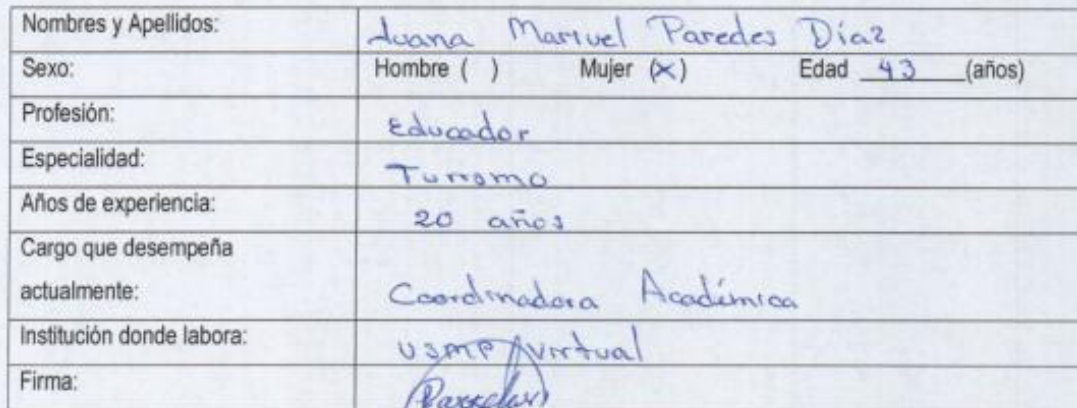 Nombres y Apellidos: Juana Marivel Paredes Díaz
Sexo: Hombre ( ) Mujer (X) Edad 43 (años)
Profesión: Educador
Especialidad: Turismo
Años de experiencia: 20 años
Cargo que desempeña
actualmente: Coordinadora Académica
Institución donde labora: USMP Virtual
Firma: Paredes